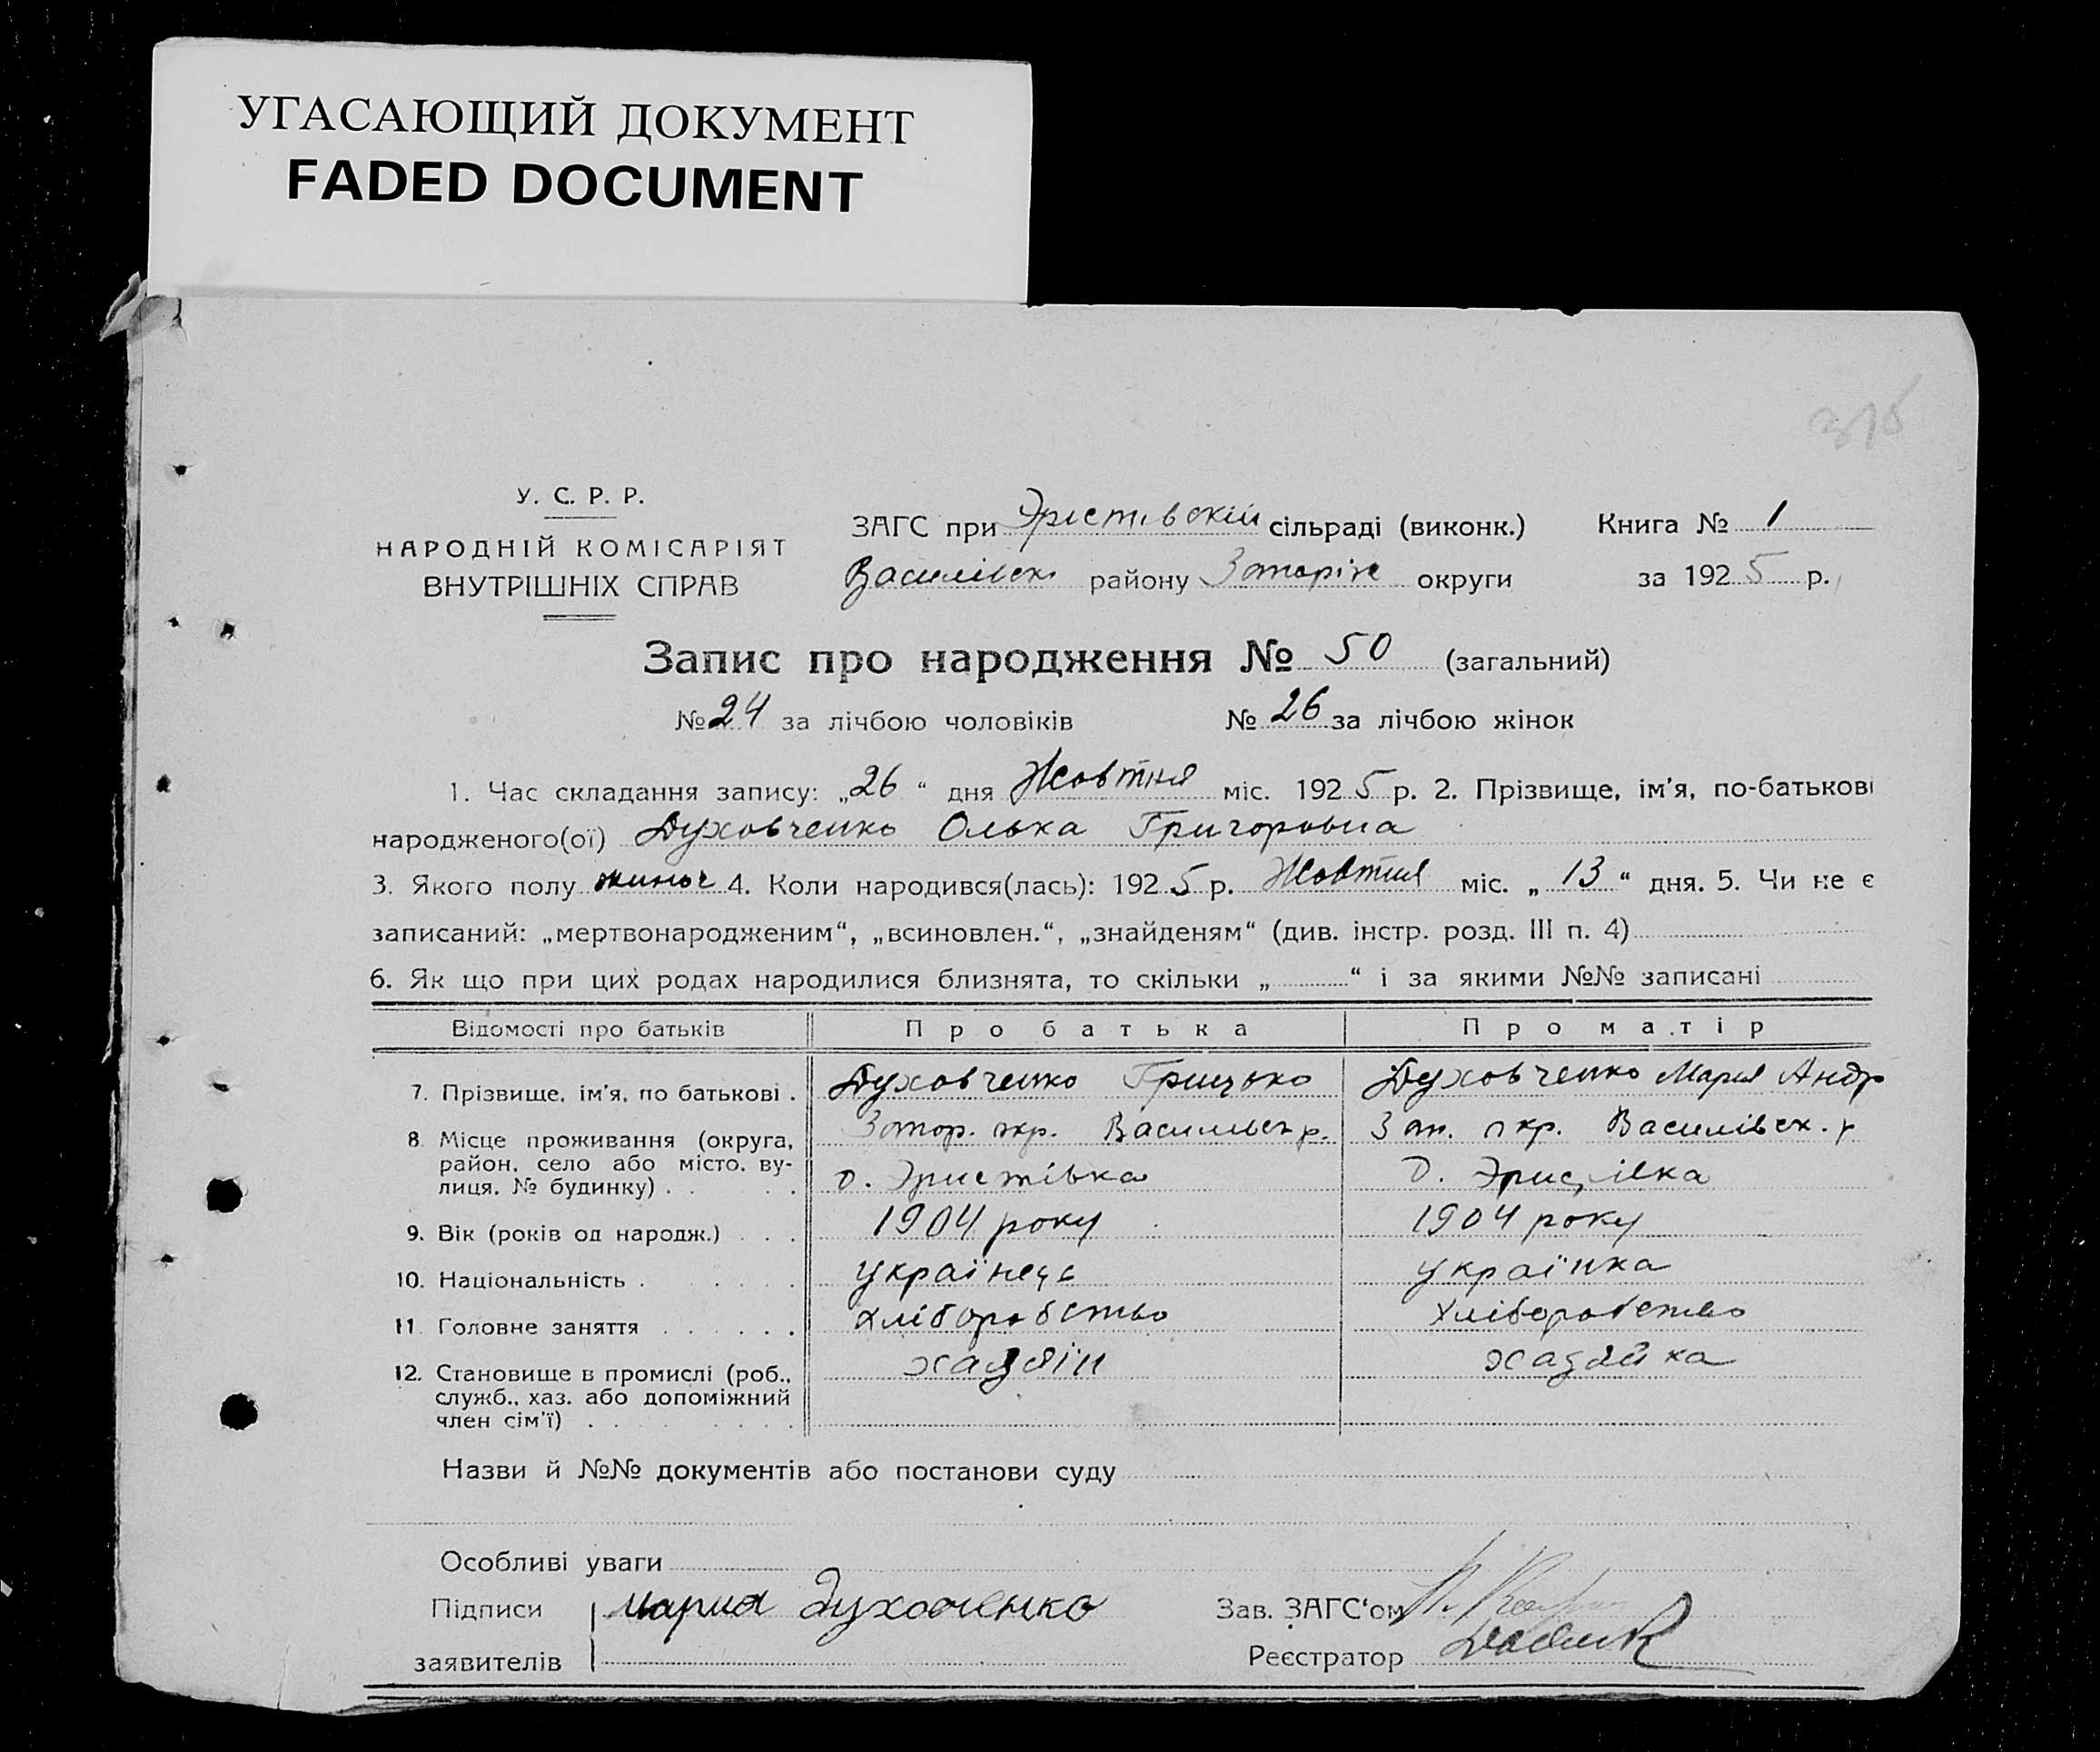 УГАСАЮЩИЙ ДОКУМЕНТ
FADED DOCUMENT
У. С. Р. Р.
НАРОДНІЙ КОМІСАРІЯТ
ВНУТРІШНІХ СПРАВ
ЗАГС при Эристівскій сільраді (виконк.) Книга № 1
Василівск району округи за 1925 р.
Запис про народження № 50 (загальний)
№ 24 за лічбою чоловіків № 26 за лічбою жінок
1. Час складання запису: „26“ дня Жовтня міс. 1925 р. 2. Прізвище, ім'я, по-батькові
народженого(ої) Духовченко Олька Григоровна
3. Якого полу жиноч 4. Коли народився(лась): 1925 р. Жовтня міс. „13“ дня. 5. Чи не є
записаний: „мертвонародженим“, „всиновлен.“, „знайденям“ (див. інстр. розд. III п. 4)
6. Як що при цих родах народилися близнята, то скільки „ “ і за якими №№ записані
Відомості про батьків Про батька Про матір
7. Прізвище, ім'я, по батькові . Духовченко Грицько Духовченко Мария Андр
8. Місце проживання (округа, район, село або місто, ву-лиця, № будинку) . . . . Запор. окр. Васильвск р. Зап. окр. Василівск. р
д. Эристівка д. Эристівка
9. Вік (років од народж.) . . . 1904 року 1904 року
10. Національність . . . . . українець українка
11. Головне заняття . . . . . . хліборобство хліборобство
12. Становище в промислі (роб., служб., хаз. або допоміжний член сім'ї) . . . . . . хазяїн хазяйка
Назви й №№ документів або постанови суду
Особливі уваги
Підписи Мария Духовченко Зав. ЗАГС'ом
заявителів Реєстратор